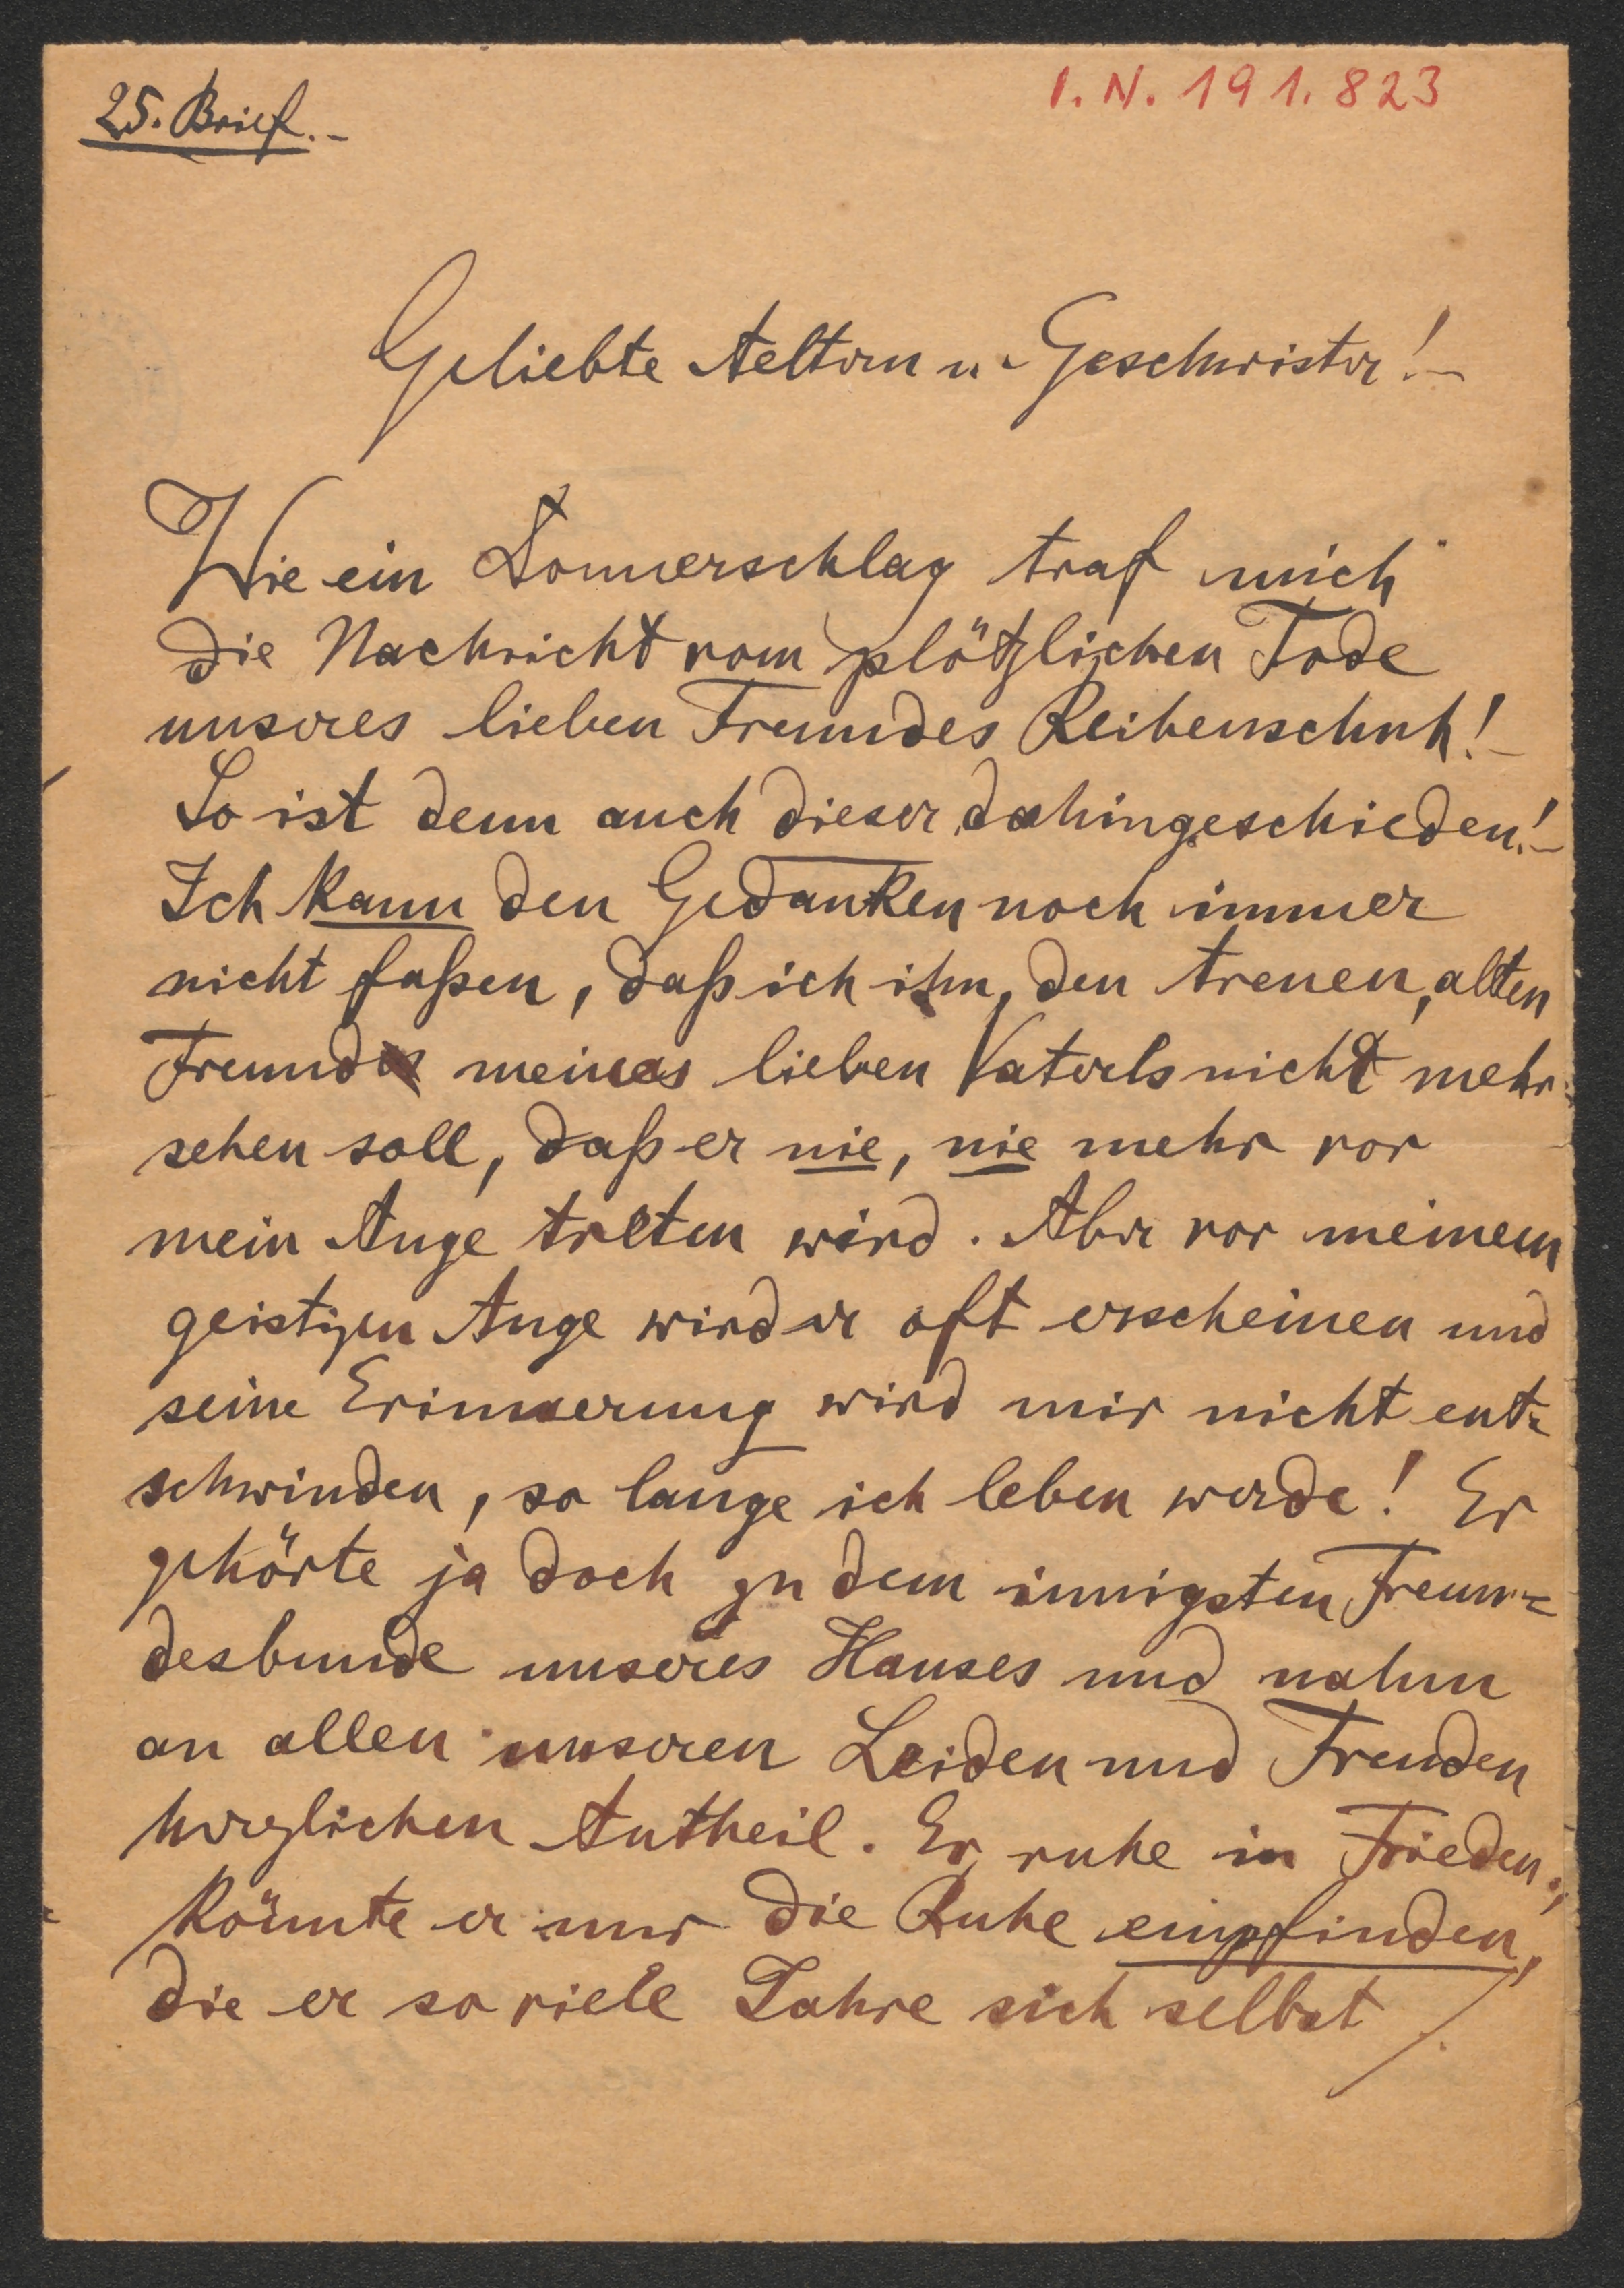 25. Brief.-
I.N. 191.823
Geliebte Aeltern u. Geschwister!-
Wie ein Donnerschlag traf mich
die Nachricht vom plötzlichen Tode
unseres lieben Freundes Reibenschuh!-
So ist denn auch dieser dahingeschieden!-
Ich kann den Gedanken noch immer
nicht faßen, daß ich ihn, den treuen, alten
Freund meines lieben Vaterls nicht mehr
sehen soll, daß er nie, nie mehr vor
mein Auge treten wird. Aber vor meinem
geistigen Auge wird er oft erscheinen und
seine Erinnerung wird mir nicht ent=
schwinden, so lange ich leben werde! Er
gehörte ja doch zu dem innigsten Freun=
desbunde unseres Hauses und nahm
an allen unseren Leiden und Freuden
herzlichen Antheil. Er ruhe in Frieden;
könnte er nur die Ruhe empfinden,
die er so viele Jahre sich selbst ./.